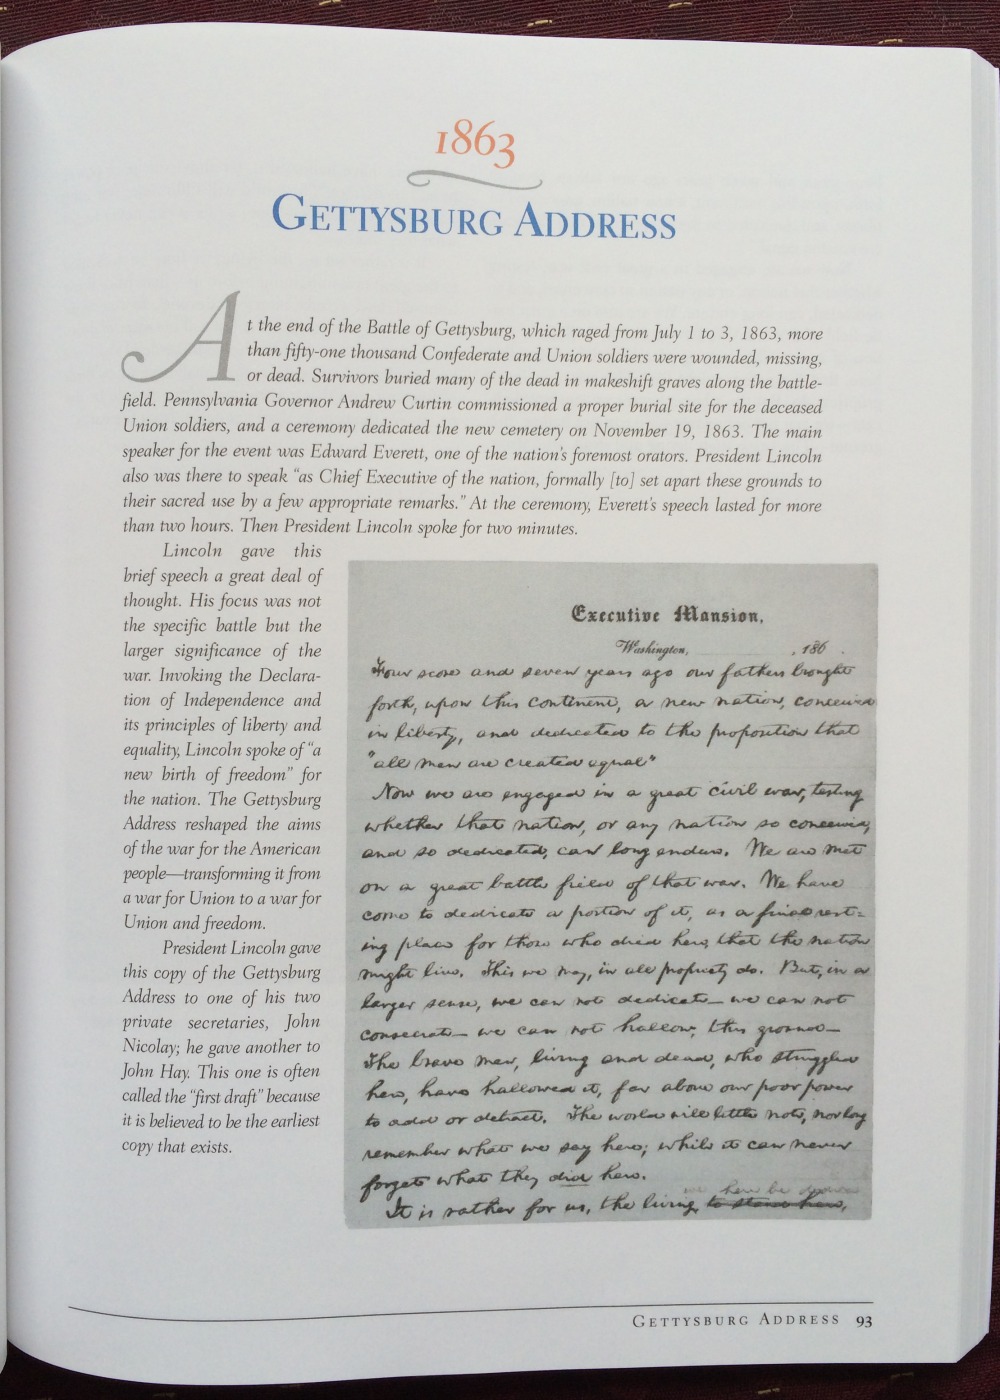 1863
GETTYSBURG ADDRESS
At the end of the Battle of Gettysburg, which raged from July 1 to 3, 1863, more
than fifty-one thousand Confederate and Union soldiers were wounded, missing,
or dead. Survivors buried many of the dead in makeshift graves along the battle-
field. Pennsylvania Governor Andrew Curtin commissioned a proper burial site for the deceased
Union soldiers, and a ceremony dedicated the new cemetery on November 19, 1863. The main
speaker for the event was Edward Everett, one of the nation's foremost orators. President Lincoln
also was there to speak "as Chief Executive of the nation, formally [to] set apart these grounds to
their sacred use by a few appropriate remarks." At the ceremony, Everett's speech lasted for more
than two hours. Then President Lincoln spoke for two minutes.
Lincoln gave this
brief speech a great deal of
thought. His focus was not
the specific battle but the
larger significance of the
war. Invoking the Declara-
tion of Independence and
its principles of liberty and
equality, Lincoln spoke of "a
new birth of freedom" for
the nation. The Gettysburg
Address reshaped the aims
of the war for the American
people—transforming it from
a war for Union to a war for
Union and freedom.
President Lincoln gave
this copy of the Gettysburg
Address to one of his two
private secretaries, John
Nicolay; he gave another to
John Hay. This one is often
called the "first draft" because
it is believed to be the earliest
copy that exists.
Executive Mansion,
Washington, , 186 .
Four score and seven years ago our fathers brought
forth, upon this continent, a new nation, conceived
in liberty, and dedicated to the proposition that
"all men are created equal"
Now we are engaged in a great civil war, testing
whether that nation, or any nation so conceived,
and so dedicated, can long endure. We are met
on a great battle field of that war. We have
come to dedicate a portion of it, as a final rest-
ing place for those who died here, that the nation
might live. This we may, in all propriety do. But, in a
larger sense, we can not dedicate— we can not
consecrate— we can not hallow, this ground—
The brave men, living and dead, who struggled
here, have hallowed it, far above our poor power
to add or detract. The world will little note, nor long
remember what we say here; while it can never
forget what they did here.
we here be
It is rather for us, the living, to stand here,
GETTYSBURG ADDRESS 93